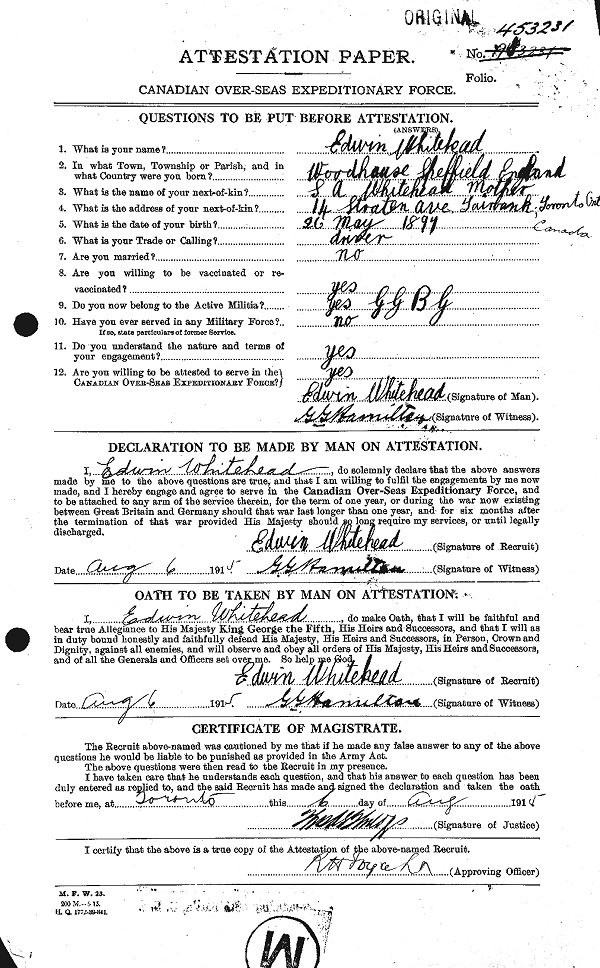 ORIGINAL
453231
ATTESTATION PAPER.
No.
Folio.
CANADIAN OVER-SEAS EXPEDITIONARY FORCE.
QUESTIONS TO BE PUT BEFORE ATTESTATION.
(ANSWERS)
1. What is your name? Edwin Whitehead
2. In what Town, Township or Parish, and in
what Country were you born? Woodhouse Sheffield England
3. What is the name of your next-of-kin? S A Whitehead Mother
4. What is the address of your next-of-kin? 14 Straten Ave Fairbank, Toronto Ont
Canada
5. What is the date of your birth? 26 May 1897
6. What is your Trade or Calling? driver
7. Are you married? no
8. Are you willing to be vaccinated or re-
vaccinated? yes
9. Do you now belong to the Active Militia? yes G G B G
10. Have you ever served in any Military Force?.. no
If so, state particulars of former Service.
11. Do you understand the nature and terms of
your engagement? yes
12. Are you willing to be attested to serve in the } yes
CANADIAN OVER-SEAS EXPEDITIONARY FORCE? }
Edwin Whitehead (Signature of Man).
GG Hamilton (Signature of Witness).
DECLARATION TO BE MADE BY MAN ON ATTESTATION.
I, Edwin Whitehead, do solemnly declare that the above answers
made by me to the above questions are true, and that I am willing to fulfil the engagements by me now
made, and I hereby engage and agree to serve in the Canadian Over-Seas Expeditionary Force, and
to be attached to any arm of the service therein, for the term of one year, or during the war now existing
between Great Britain and Germany should that war last longer than one year, and for six months after
the termination of that war provided His Majesty should so long require my services, or until legally
discharged.
Edwin Whitehead (Signature of Recruit)
Date Aug 6 1915 GG Hamilton (Signature of Witness)
OATH TO BE TAKEN BY MAN ON ATTESTATION.
I, Edwin Whitehead, do make Oath, that I will be faithful and
bear true Allegiance to His Majesty King George the Fifth, His Heirs and Successors, and that I will as
in duty bound honestly and faithfully defend His Majesty, His Heirs and Successors, in Person, Crown and
Dignity, against all enemies, and will observe and obey all orders of His Majesty, His Heirs and Successors,
and of all the Generals and Officers set over me. So help me God.
Edwin Whitehead (Signature of Recruit)
Date Aug 6 1915 GG Hamilton (Signature of Witness)
CERTIFICATE OF MAGISTRATE.
The Recruit above-named was cautioned by me that if he made any false answer to any of the above
questions he would be liable to be punished as provided in the Army Act.
The above questions were then read to the Recruit in my presence.
I have taken care that he understands each question, and that his answer to each question has been
duly entered as replied to, and the said Recruit has made and signed the declaration and taken the oath
before me, at Toronto this 6 day of Aug 1915
(Signature of Justice)
I certify that the above is a true copy of the Attestation of the above-named Recruit.
(Approving Officer)
M. F. W. 23.
200 M.-5 15.
H. Q. 1772-39-841.
M